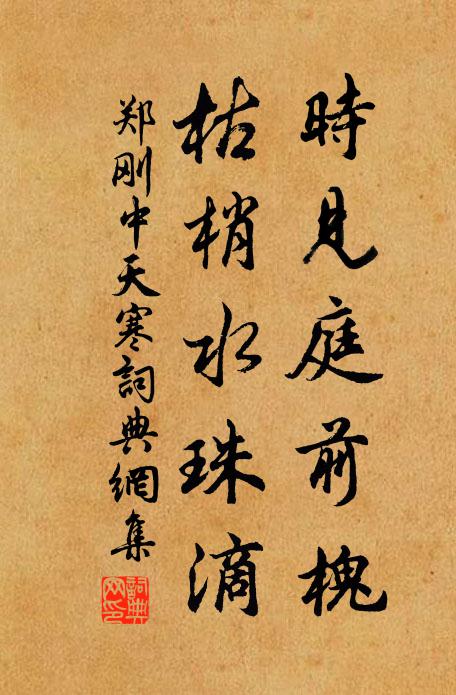 時見庭前槐
枯梢水珠滴
郑刚中天寒詞典網集
詞典網印